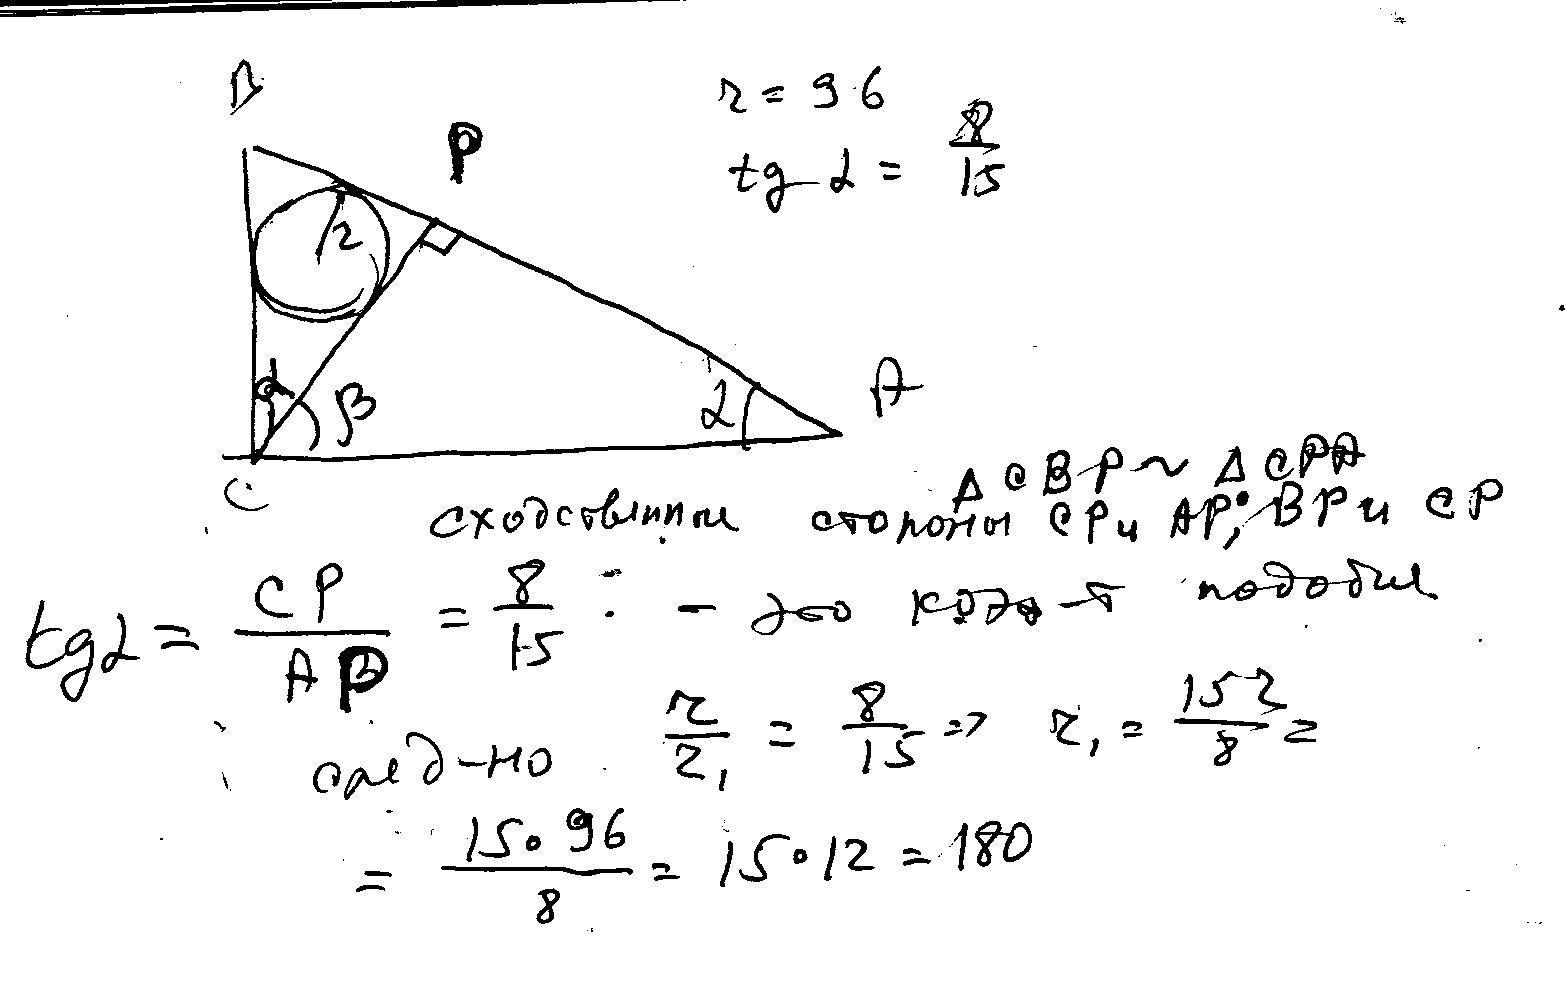 B
P
r = 96
tg α = 8/15
r
α
β
α
A
C
Δ CBP ~ Δ CPA
сходственные стороны CP и AP; BP и CP
tg α = CP/AP = 8/15 : - это коэ-т подобия
след-но r/r₁ = 8/15 => r₁ = 15r/8 =
= 15·96/8 = 15·12 = 180